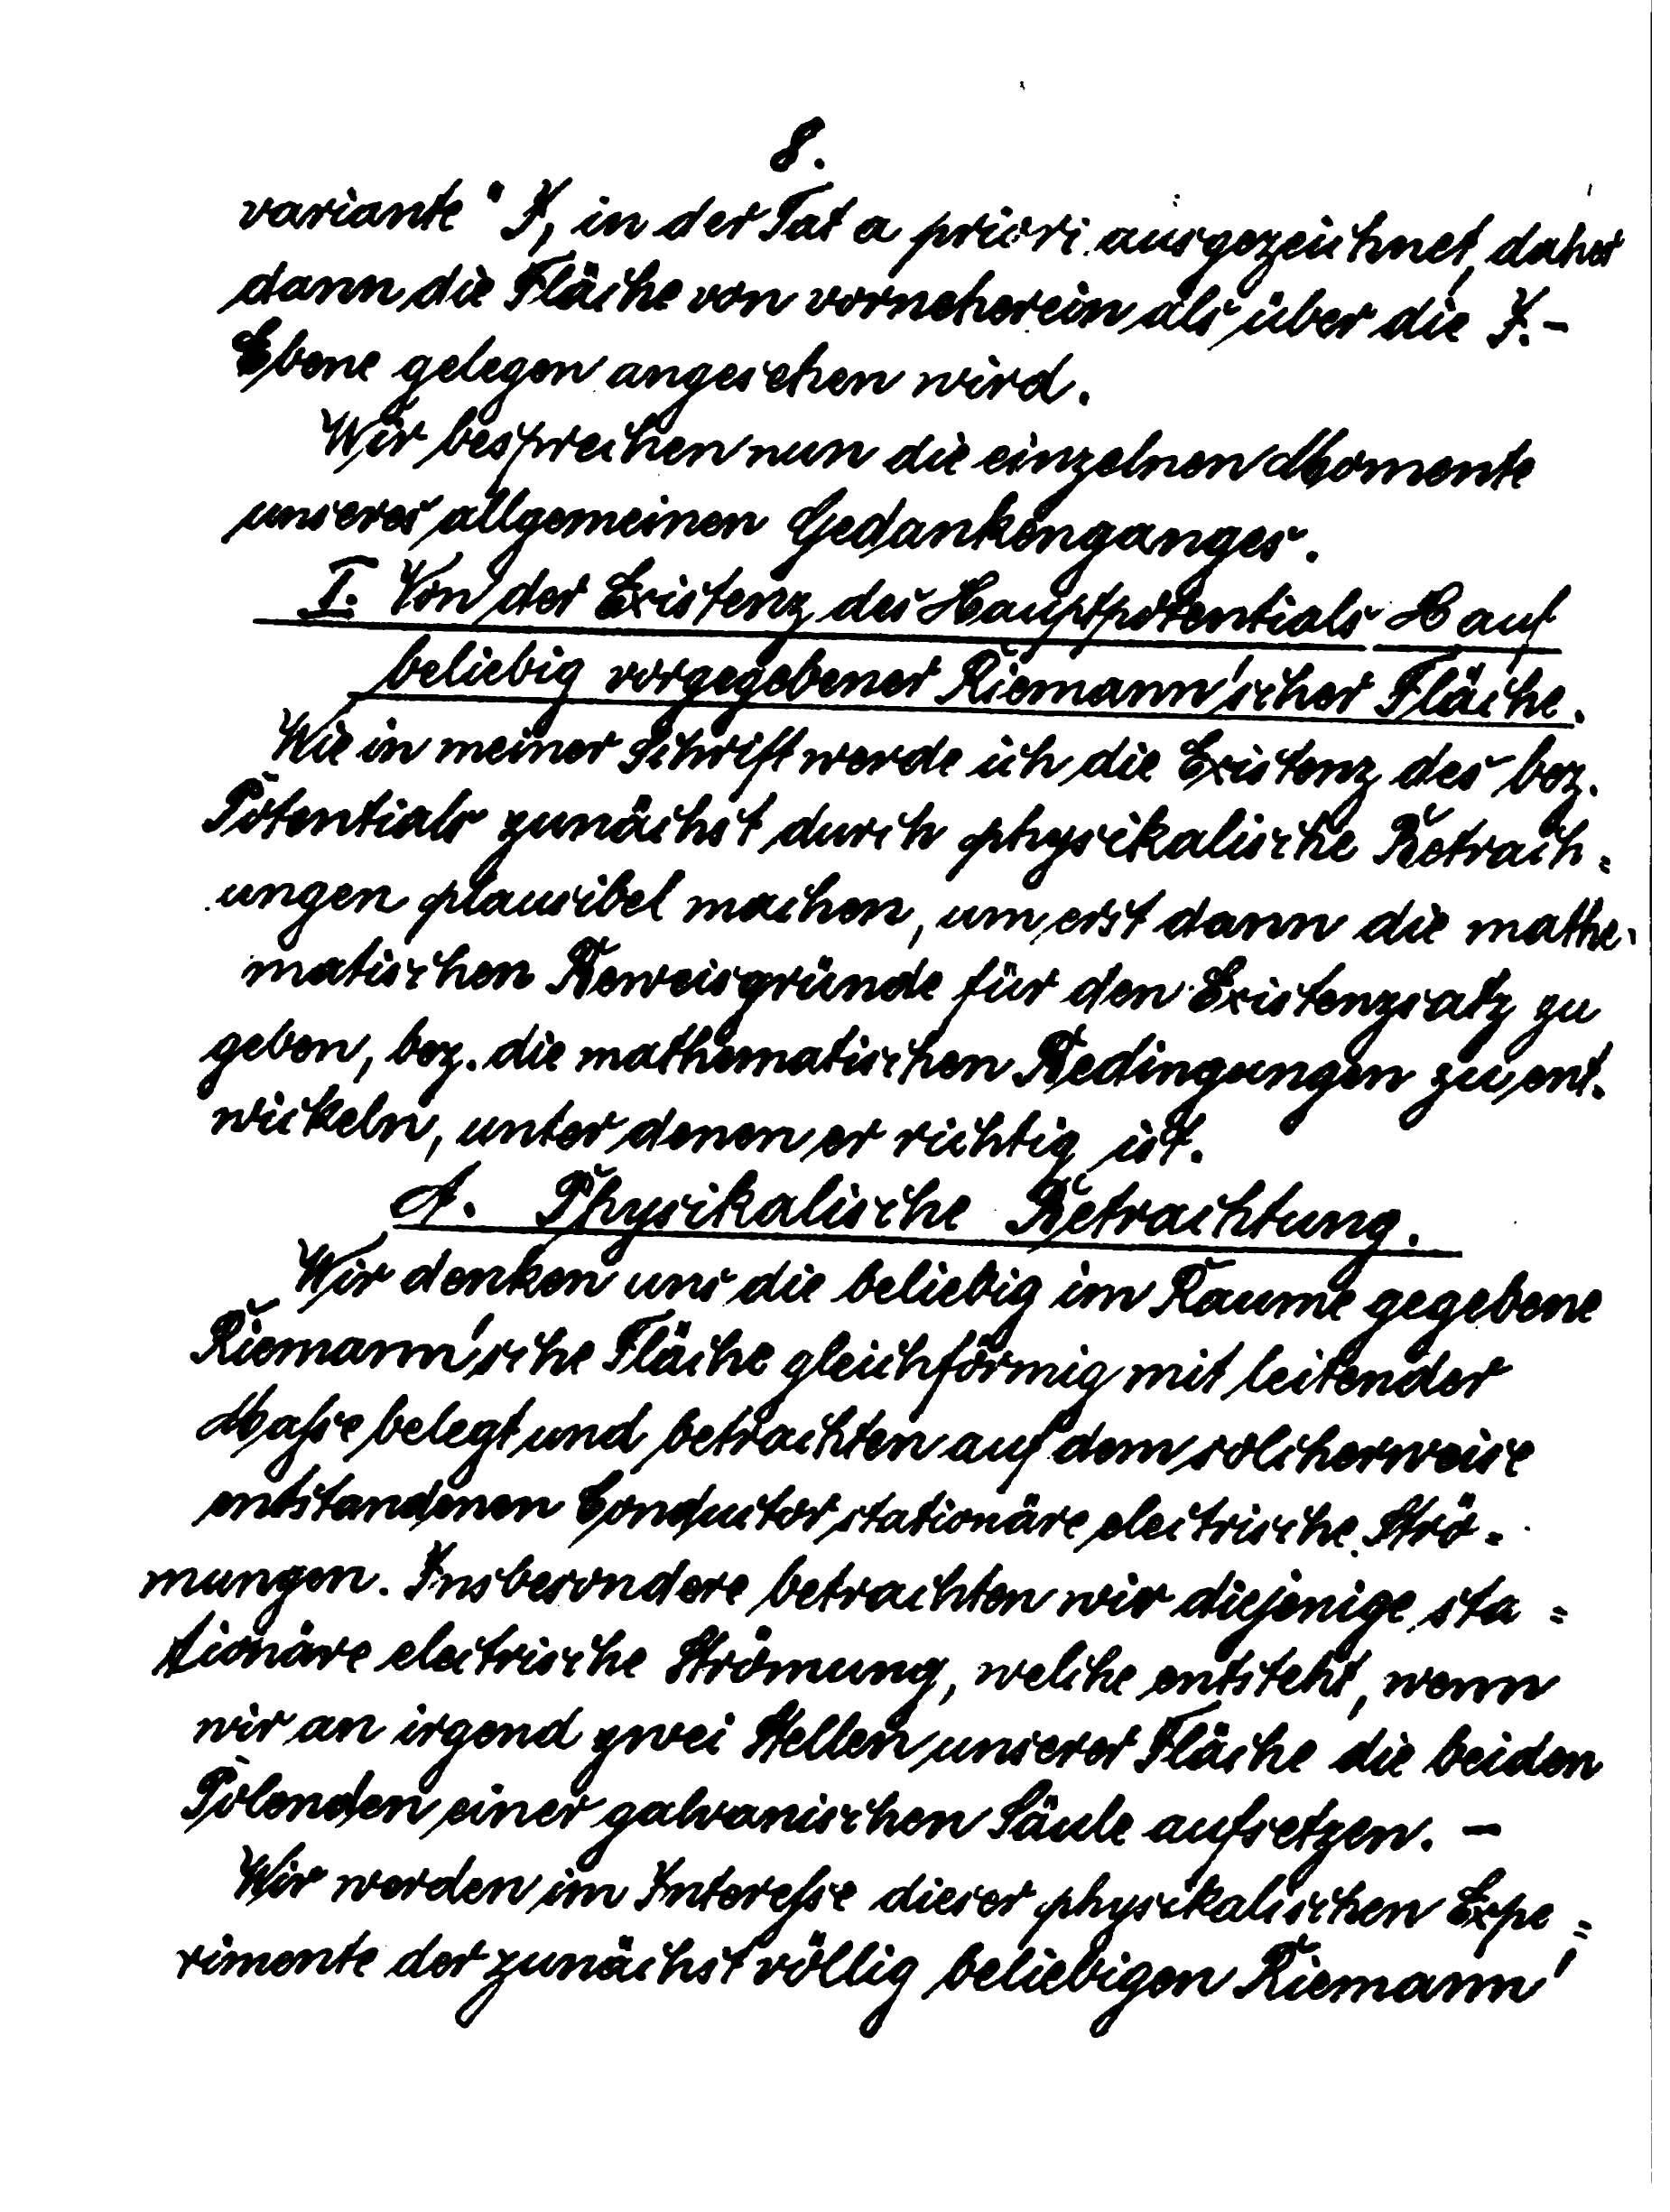 8.
variante" J, in der Tat a priori ausgezeichnet, daher
dann die Fläche von vorneherein als über die J.-
Ebene gelegen angesehen wird.
Wir besprechen nun die einzelnen Momente
unseres allgemeinen Gedankenganges.
I. Von der Existenz des Hauptpotentials H auf
beliebig vorgegebener Riemann'scher Fläche.
Wie in meiner Schrift werde ich die Existenz des bez.
Potentials zunächst durch physikalische Betrach=
ungen plausibel machen, um erst dann die mathe-
matischen Beweisgründe für den Existenzsatz zu
geben, bez. die mathematischen Bedingungen zu ent-
wickeln, unter denen er richtig ist.
A. Physikalische Betrachtung.
Wir denken uns die beliebig im Raume gegebene
Riemann'sche Fläche gleichförmig mit leitender
Masse belegt und betrachten auf dem solcherweise
entstandenen Conductor stationäre electrische Strö=
mungen. Insbesondere betrachten wir diejenige sta=
tionäre electrische Strömung, welche entsteht, wenn
wir an irgend zwei Stellen unserer Fläche die beiden
Polenden einer galvanischen Säule aufsetzen. -
Wir werden im Interesse dieser physikalischen Expe=
rimente der zunächst völlig beliebigen Riemann'